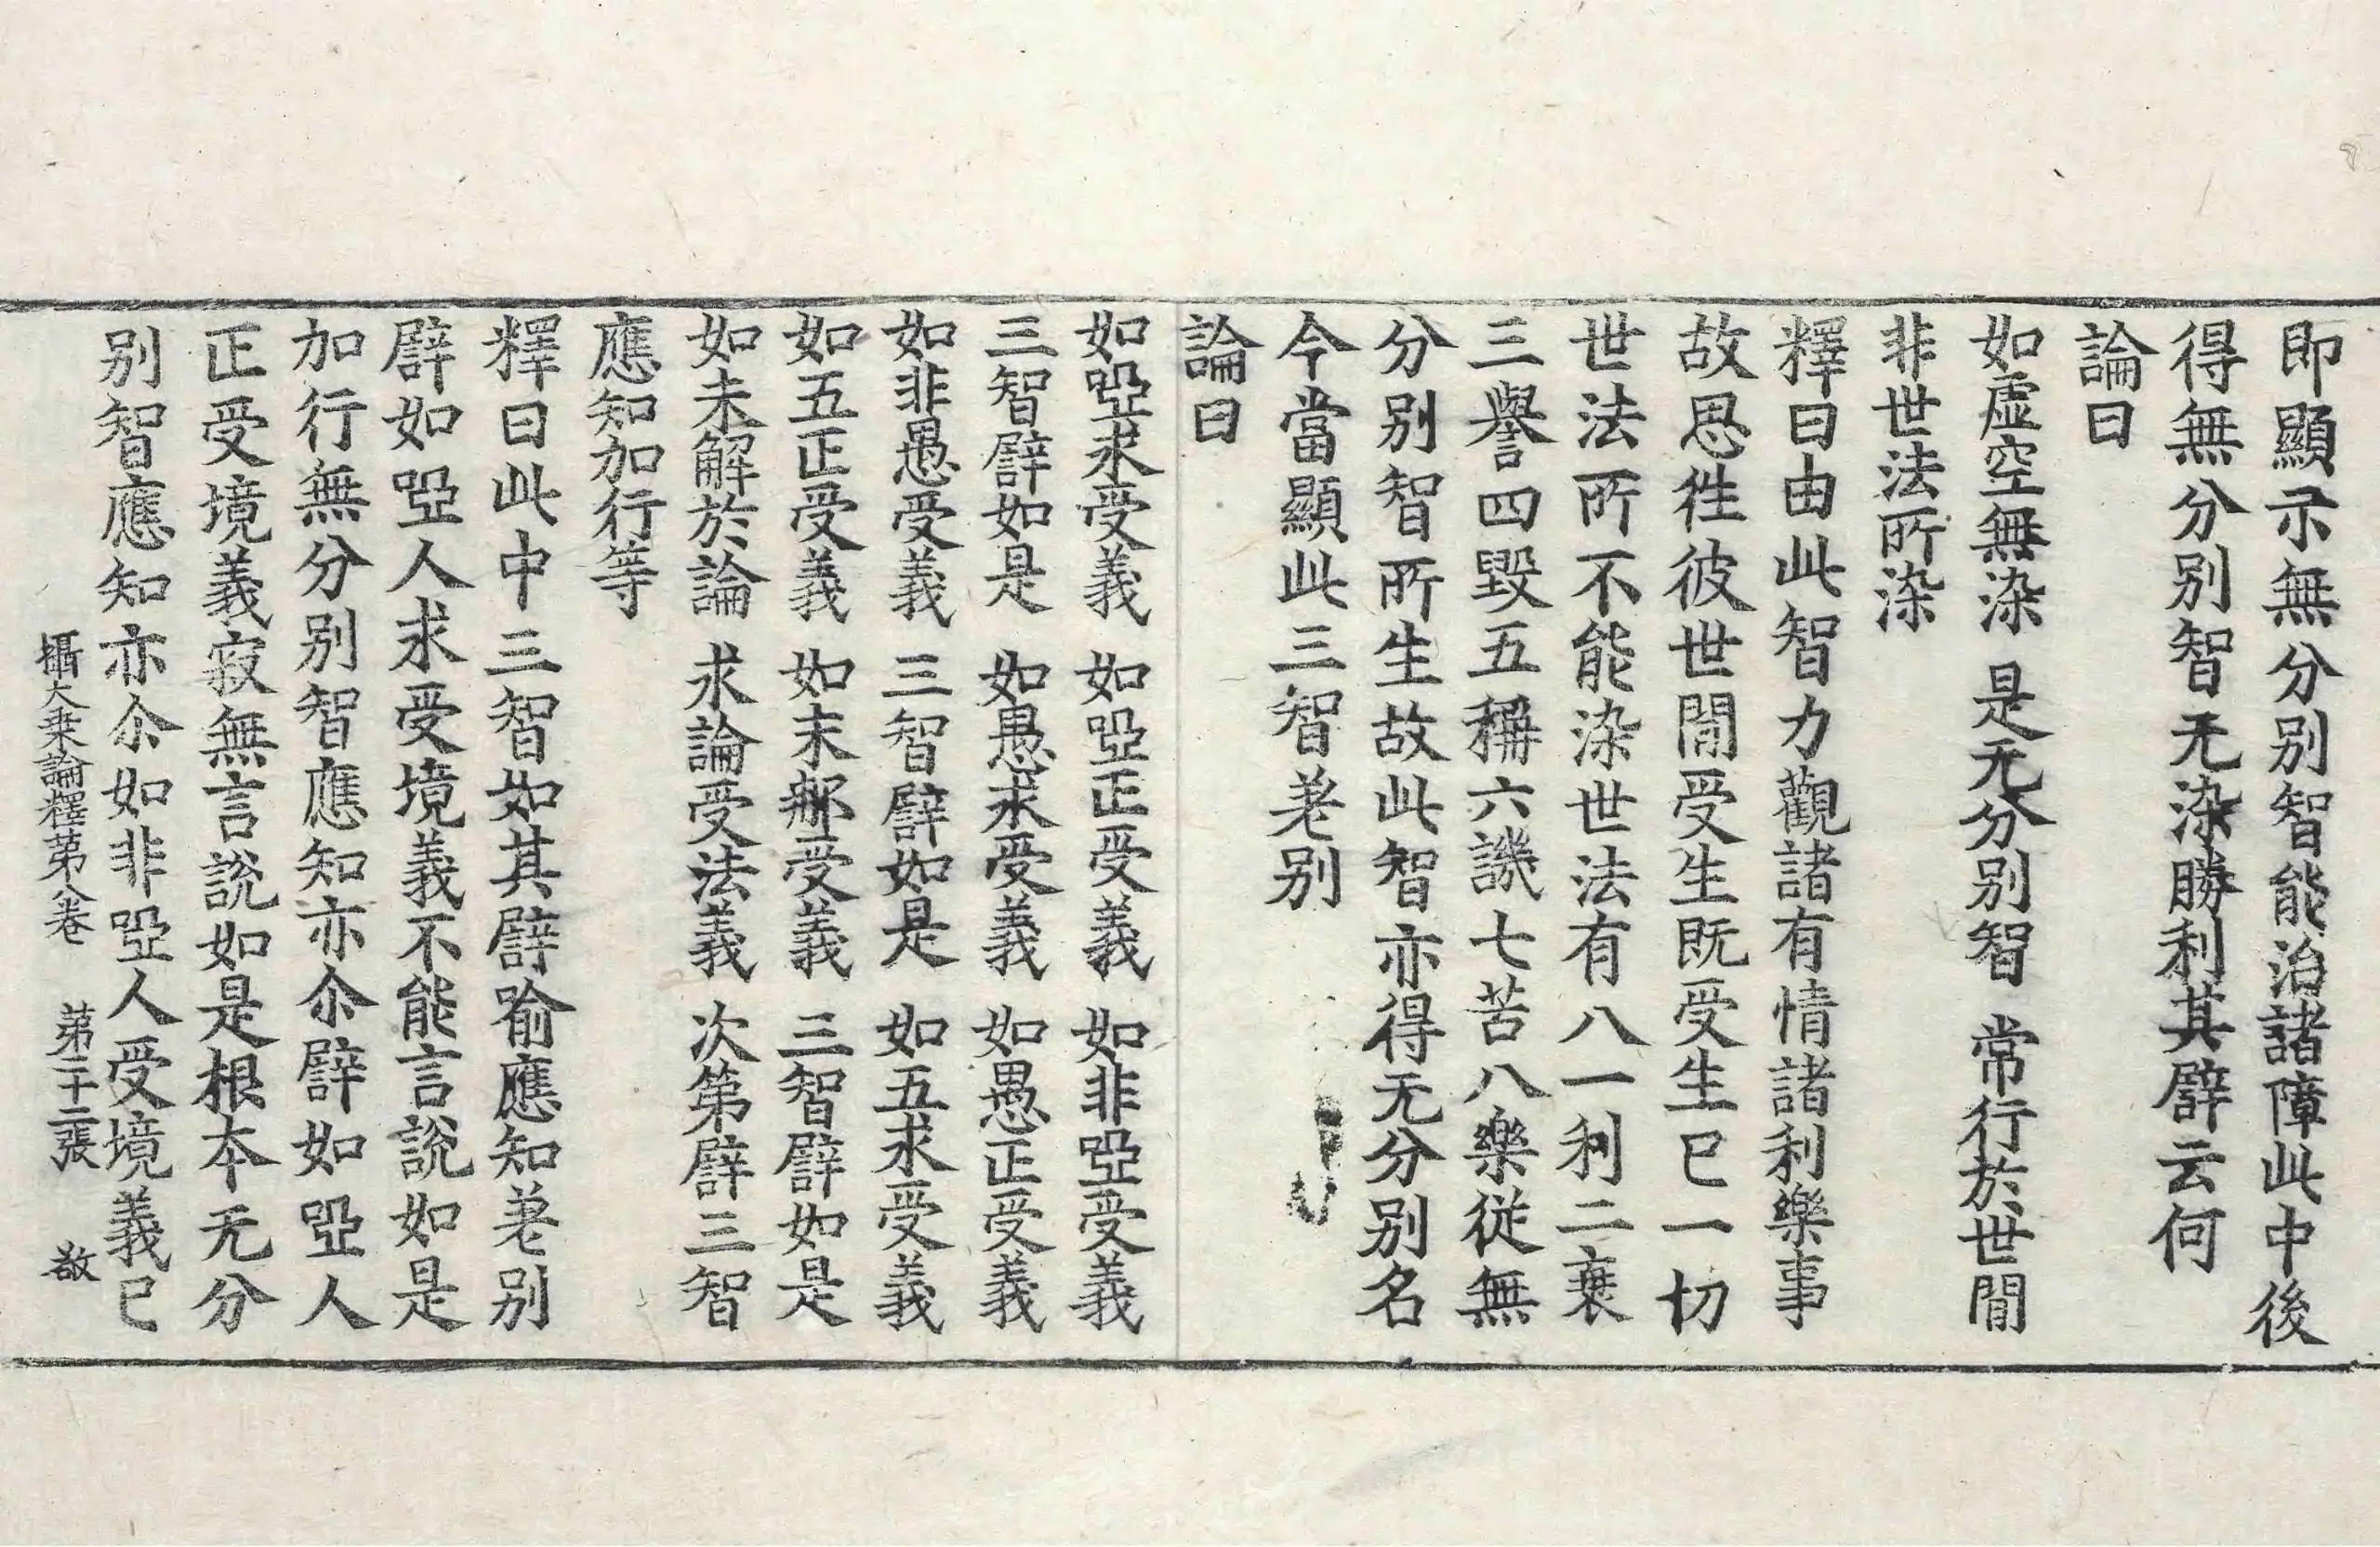 即顯示無分別智能治諸障此中後
得無分別智无染勝利其譬云何
論曰
如虛空無染 是无分別智 常行於世間
非世法所染
釋曰由此智力觀諸有情諸利樂事
故思往彼世間受生既受生已一切
世法所不能染世法有八一利二衰
三譽四毀五稱六譏七苦八樂從無
分別智所生故此智亦得无分別名
今當顯此三智差別
論曰
如啞求受義 如啞正受義 如非啞受義
三智譬如是 如愚求受義 如愚正受義
如非愚受義 三智譬如是 如五求受義
如五正受義 如末那受義 三智譬如是
如未解於論 求論受法義 次第譬三智
應知加行等
釋曰此中三智如其譬喻應知差別
譬如啞人求受境義不能言說如是
加行無分別智應知亦尒譬如啞人
正受境義寂無言說如是根本无分
別智應知亦尒如非啞人受境義已
攝大乘論釋第八卷 第二十二張 敬